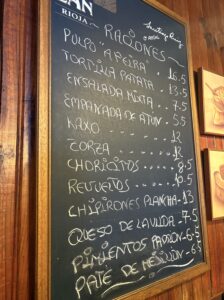 RIOJA
RACIONES
PULPO "A FEIRA" 16.5
TORTILLA PATATA 8.5
ENSALADA MIXTA 7.5
EMPANADA DE ATUN 5.5
RAXO 12
ZORZA 12
CHORICITOS 8.5
REVUELTOS 10.5
CHIPIRONES PLANCHA 13
QUESO DE LA VILLA 7.5
PIMIENTOS PADRÓN 6.5
PATE DE MEJILLÓN 6.5